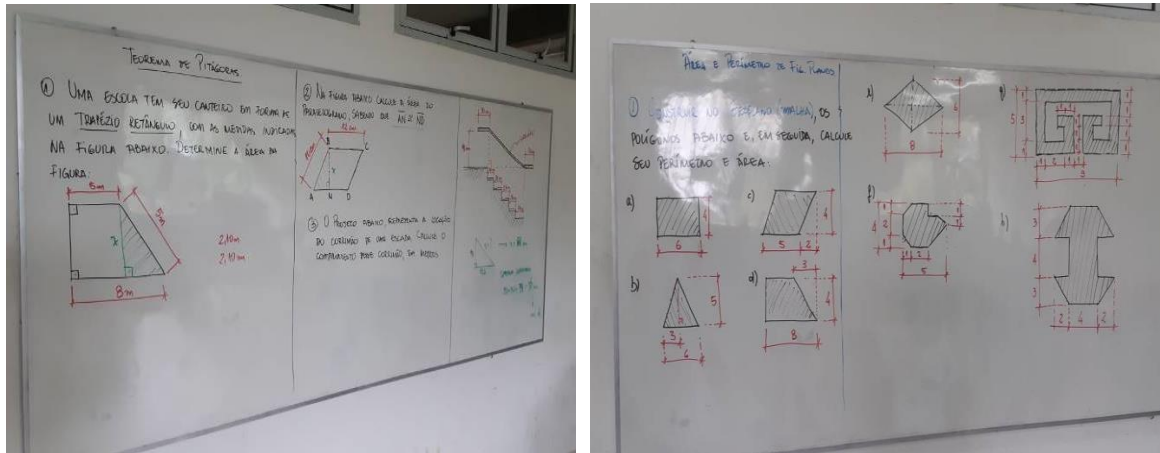 TEOREMA DE PITÁGORAS
① UMA ESCOLA TEM SEU CANTEIRO EM FORMA DE
UM TRAPÉZIO RETÂNGULO, COM AS MEDIDAS INDICADAS
NA FIGURA ABAIXO. DETERMINE A ÁREA DA
FIGURA:
5m
x
8m
2,10m
2,10m
② NA FIGURA ABAIXO CALCULE A ÁREA DO
PARALELOGRAMO, SABENDO QUE
12 cm
B
C
A N D
③ O PROJETO ABAIXO REPRESENTA A LOCAÇÃO
DO CORRIMÃO DE UMA ESCADA. CALCULE O
COMPRIMENTO DESSE CORRIMÃO, EM METROS
ÁREA E PERÍMETRO DE FIG. PLANAS
① CONSTRUIR NO (MALHA), OS
POLÍGONOS ABAIXO E, EM SEGUIDA, CALCULE
SEU PERÍMETRO E ÁREA:
a)
4
6
b)
5
3
6
c)
4
5 2
d)
3
4
8
6
8
f)
4
1
2
1
1 2
5
g)
5
3
2
9
h)
3
4
3
2 4 2